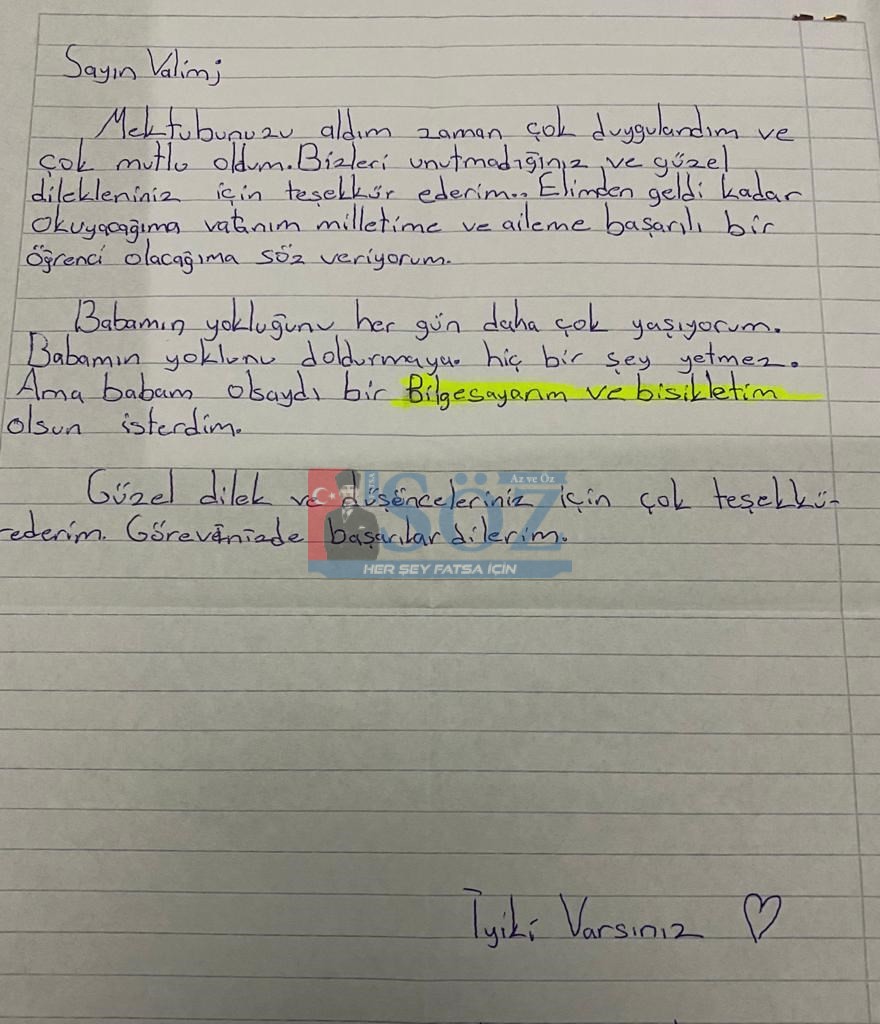 Sayın Valim;
Mektubunuzu aldım zaman çok duygulandım ve
çok mutlu oldum. Bizleri unutmadığınız ve güzel
dilekleniniz için teşekkür ederim.. Elimden geldi kadar
okuyacağıma vatanım milletime ve aileme başarılı bir
öğrenci olacağıma söz veriyorum.
Babamın yokluğunu her gün daha çok yaşıyorum.
Babamın yoklunu doldurmaya hiç bir şey yetmez.
Ama babam olsaydı bir Bilgesayarım ve bisikletim
olsun isterdim.
Güzel dilek ve düşünceleriniz için çok teşekkü-
ederim. Görevinizde başarılar dilerim.
Az ve Öz
SÖZ
HER ŞEY FATSA İÇİN
İyiki Varsınız